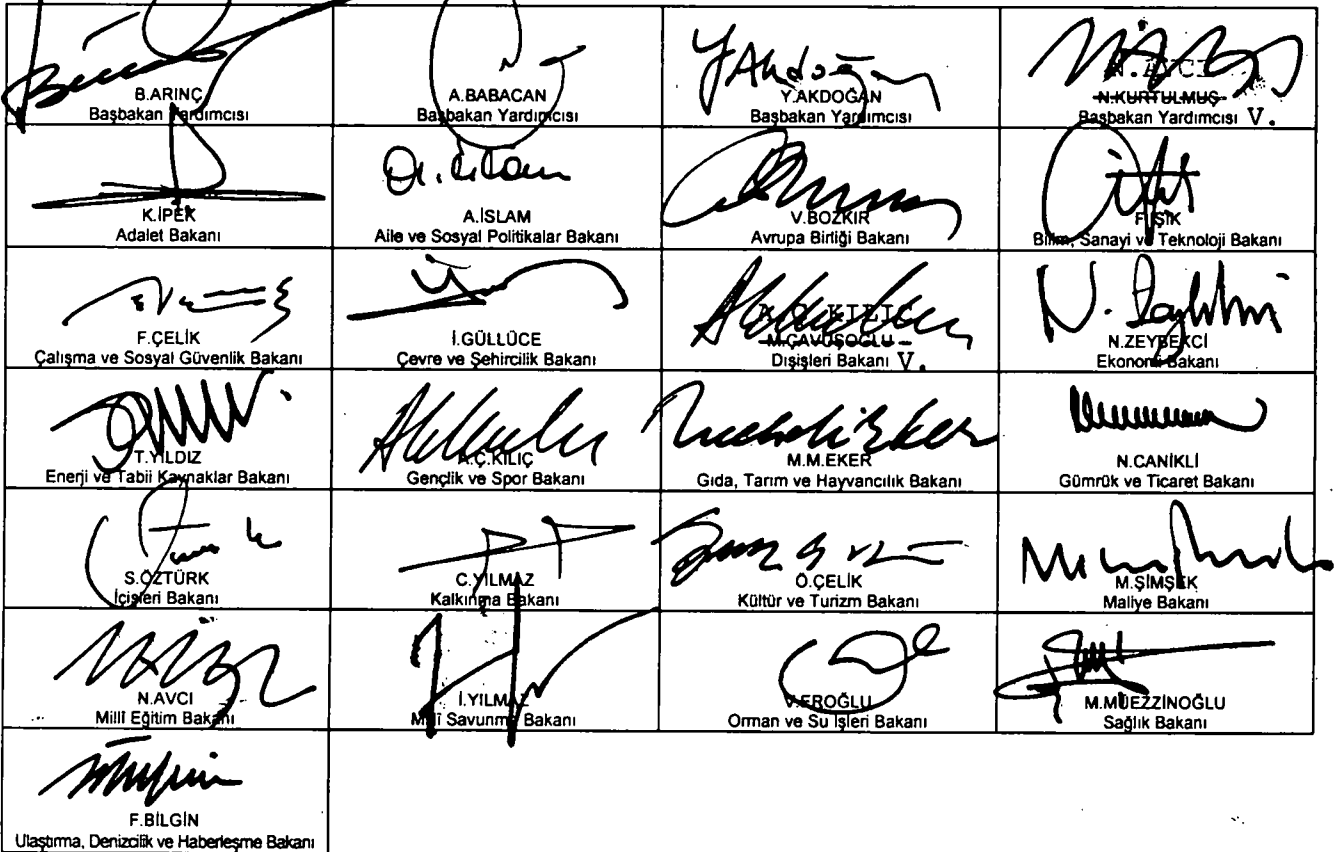 B.ARINÇ
Başbakan Yardımcısı
A.BABACAN
Başbakan Yardımcısı
Y.AKDOĞAN
Başbakan Yardımcısı
N.AVCI
N.KURTULMUŞ
Başbakan Yardımcısı V.
K.İPEK
Adalet Bakanı
A.İSLAM
Aile ve Sosyal Politikalar Bakanı
V.BOZKIR
Avrupa Birliği Bakanı
F.IŞIK
Bilim, Sanayi ve Teknoloji Bakanı
F.ÇELİK
Çalışma ve Sosyal Güvenlik Bakanı
İ.GÜLLÜCE
Çevre ve Şehircilik Bakanı
A.Ç.KILIÇ
M.ÇAVUŞOĞLU
Dışişleri Bakanı V.
N.ZEYBEKCİ
Ekonomi Bakanı
T.YILDIZ
Enerji ve Tabii Kaynaklar Bakanı
A.Ç.KILIÇ
Gençlik ve Spor Bakanı
M.M.EKER
Gıda, Tarım ve Hayvancılık Bakanı
N.CANİKLİ
Gümrük ve Ticaret Bakanı
S.ÖZTÜRK
İçişleri Bakanı
C.YILMAZ
Kalkınma Bakanı
Ö.ÇELİK
Kültür ve Turizm Bakanı
M.ŞİMŞEK
Maliye Bakanı
N.AVCI
Millî Eğitim Bakanı
İ.YILMAZ
Millî Savunma Bakanı
V.EROĞLU
Orman ve Su İşleri Bakanı
M.MÜEZZİNOĞLU
Sağlık Bakanı
F.BİLGİN
Ulaştırma, Denizcilik ve Haberleşme Bakanı